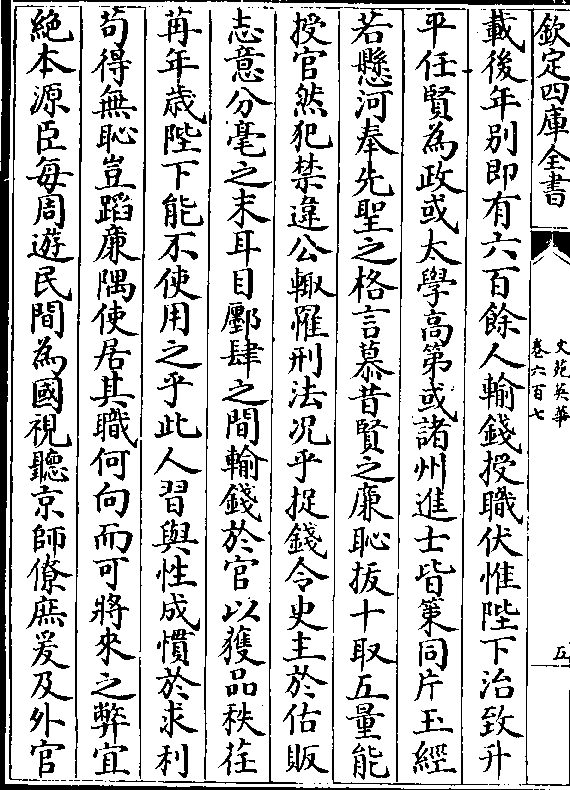 欽定四庫全書
文苑英華
卷六百七
五
載後年别即有六百餘人輸錢授職伏惟陛下治致升
平任賢為政或太學高第或諸州進士皆策同片玉經
若懸河奉先聖之格言慕昔賢之廉恥拔十取五量能
授官然犯禁違公輙罹刑法况乎捉錢令史主於估販
志意分毫之末耳目鄽肆之間輸錢於官以獲品秩荏
苒年歲陛下能不使用之乎此人習與性成慣於求利
茍得無恥豈蹈廉隅使居其職何向而可將來之弊宜
絶本源臣每周遊民間為國視聽京師僚庶爰及外官